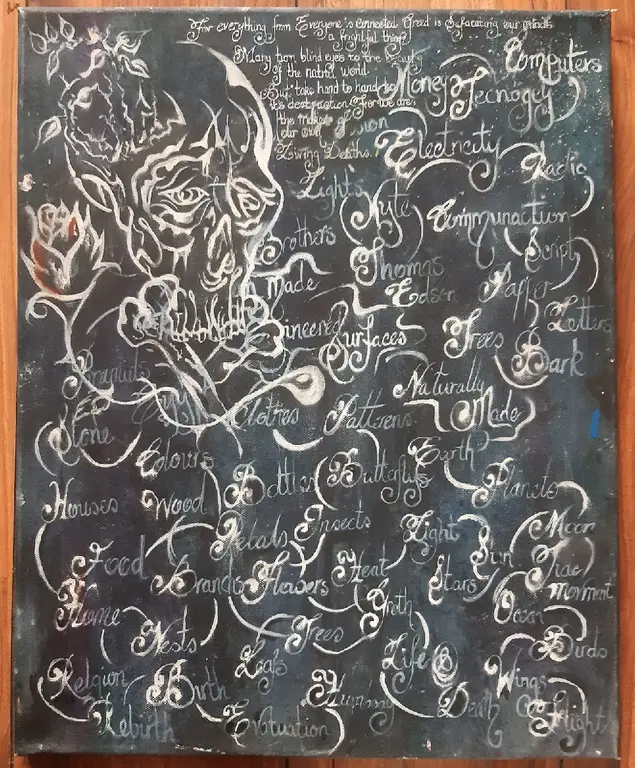 For everything from Everyone is connected Greed is Sufacating our minds
a frightful thing
Many turn blind eyes to the beauty
of the natrul world.
But take hand to hand to
it's destruction For we are
the makers of
our own
Living Deaths.
Computers
Money Tecnogey
Electricity
Plactic
Lights
Kyte Communaction
Brothers Script
Thomas
Made Edson Papper
Letters
Sincered Surfaces Trees
Bark
Naturally
Clothes Patterens Made
Stone
Colours Earth
Bottles Butterflys Planets
Houses Wood
Petals Insects Light Moon
Sun
Food Branchs Flowers Heat Stars Tide
movment
Home Groth Ocean
Nests Trees
Birds
Leafs Life
Relgion Birth Wings
Humanay Death
Rebirth Evoluation Flight